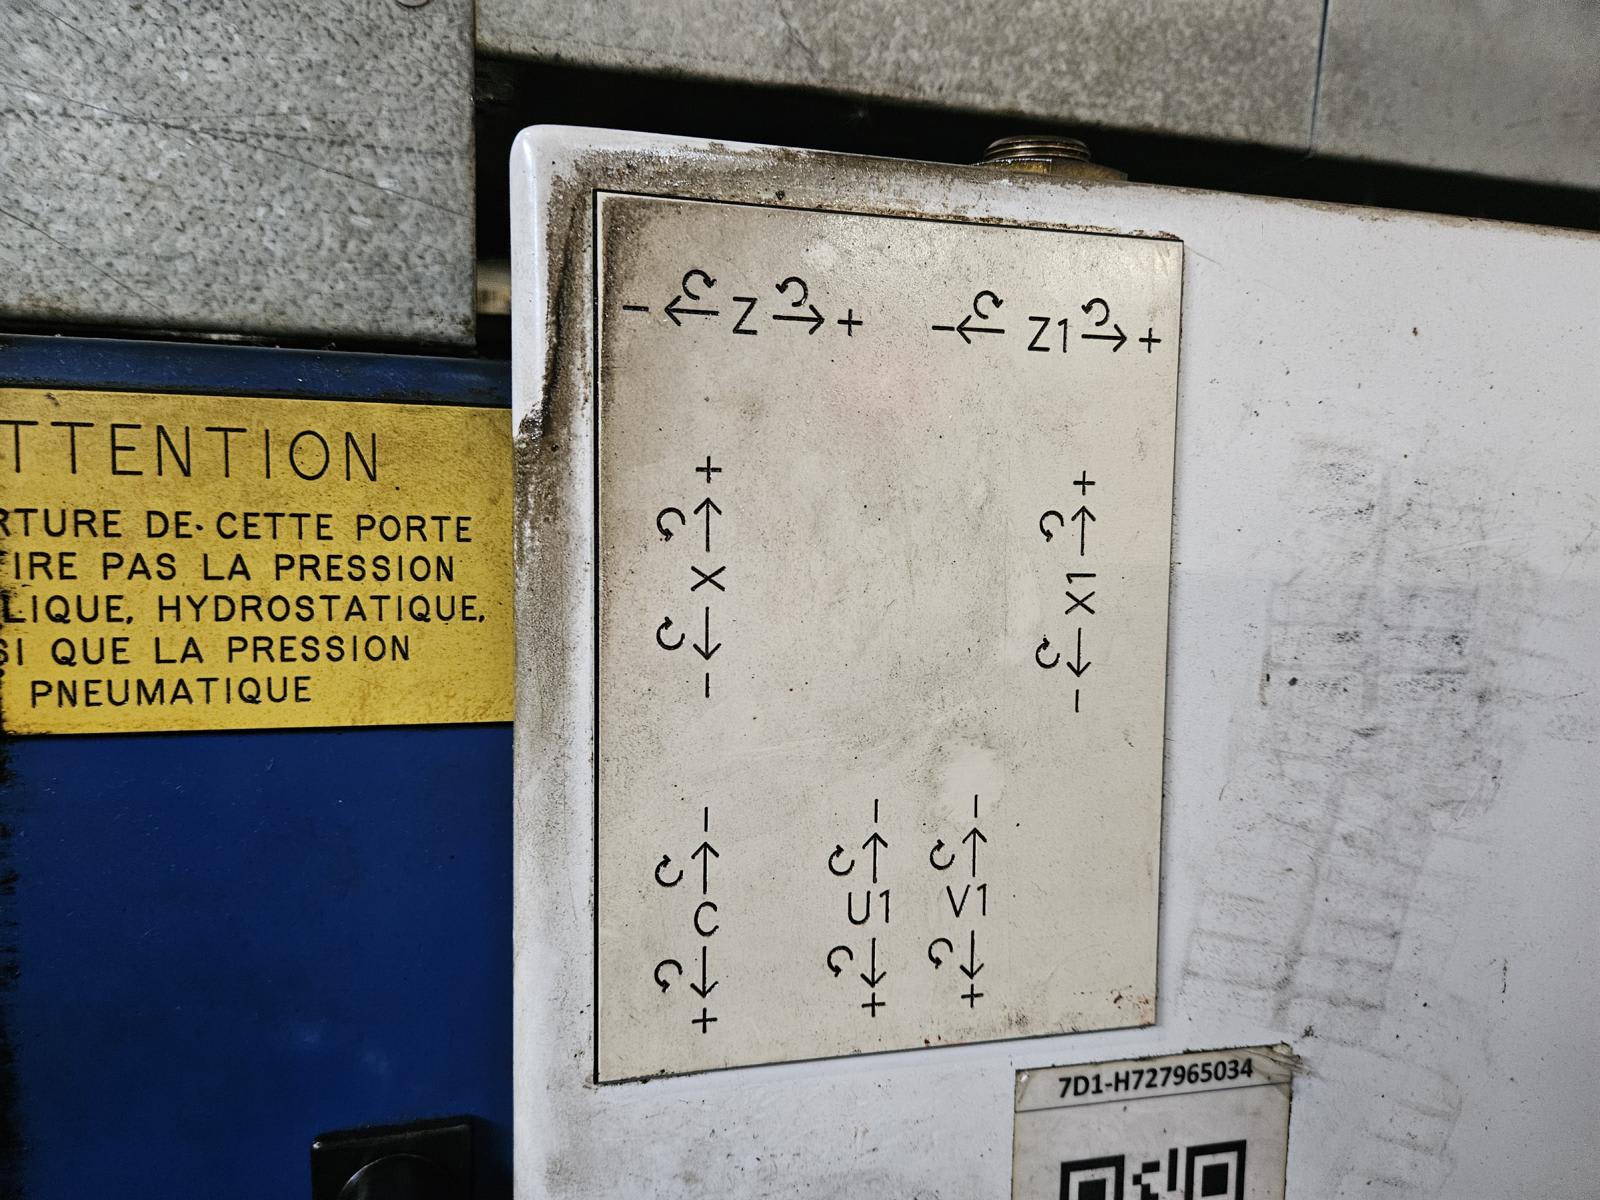 TTENTION
RTURE DE CETTE PORTE
IRE PAS LA PRESSION
LIQUE, HYDROSTATIQUE,
SI QUE LA PRESSION
PNEUMATIQUE
- Z + - Z1 +
+ +
X X1
- -
- - -
C U1 V1
+ + +
7D1-H727965034